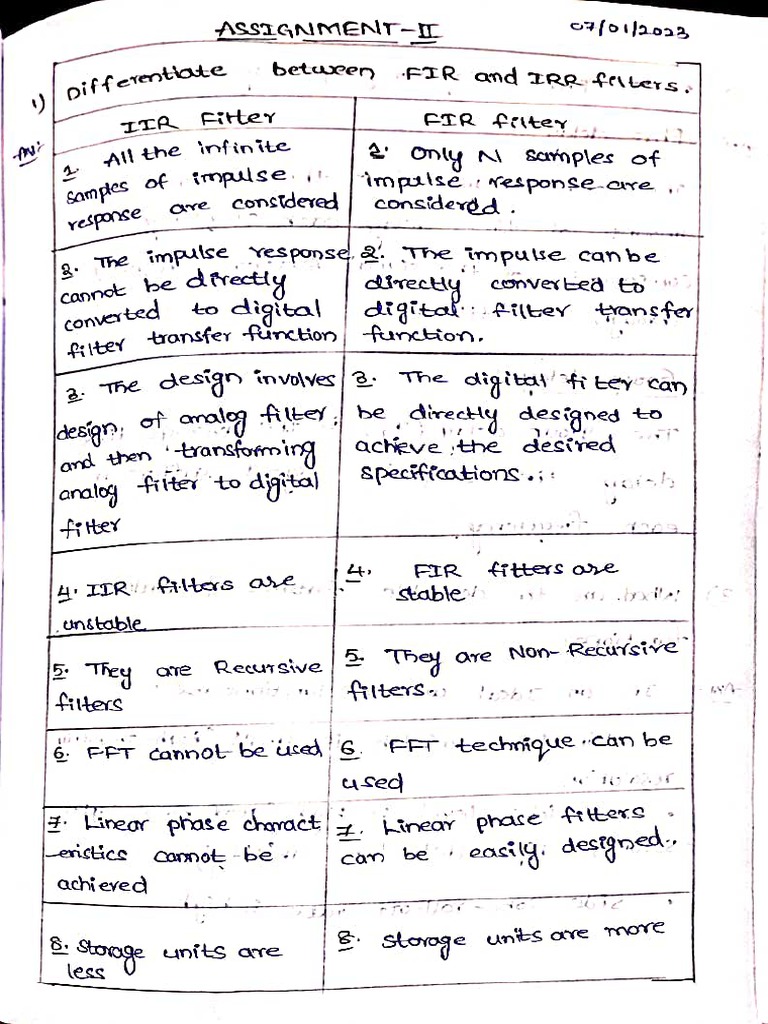 ASSIGNMENT-II
07/01/2023
1) Differentiate between FIR and IRR filters.
Ans:
IIR Filter
1. All the infinite
samples of impulse
response are considered
2. The impulse response
cannot be directly
converted to digital
filter transfer function
3. The design involves
design of analog filter
and then transforming
analog filter to digital
filter
4. IIR filters are
unstable
5. They are Recursive
filters
6. FFT cannot be used
7. Linear phase charact
-eristics cannot be
achieved
8. Storage units are
less
FIR filter
1. Only N samples of
impulse response are
considered.
2. The impulse can be
directly converted to
digital filter transfer
function.
3. The digital filter can
be directly designed to
achieve the desired
specifications.
4. FIR fitters are
stable
5. They are Non-Recursive
filters.
6. FFT technique can be
used
7. Linear phase filters
can be easily designed.
8. Storage units are more